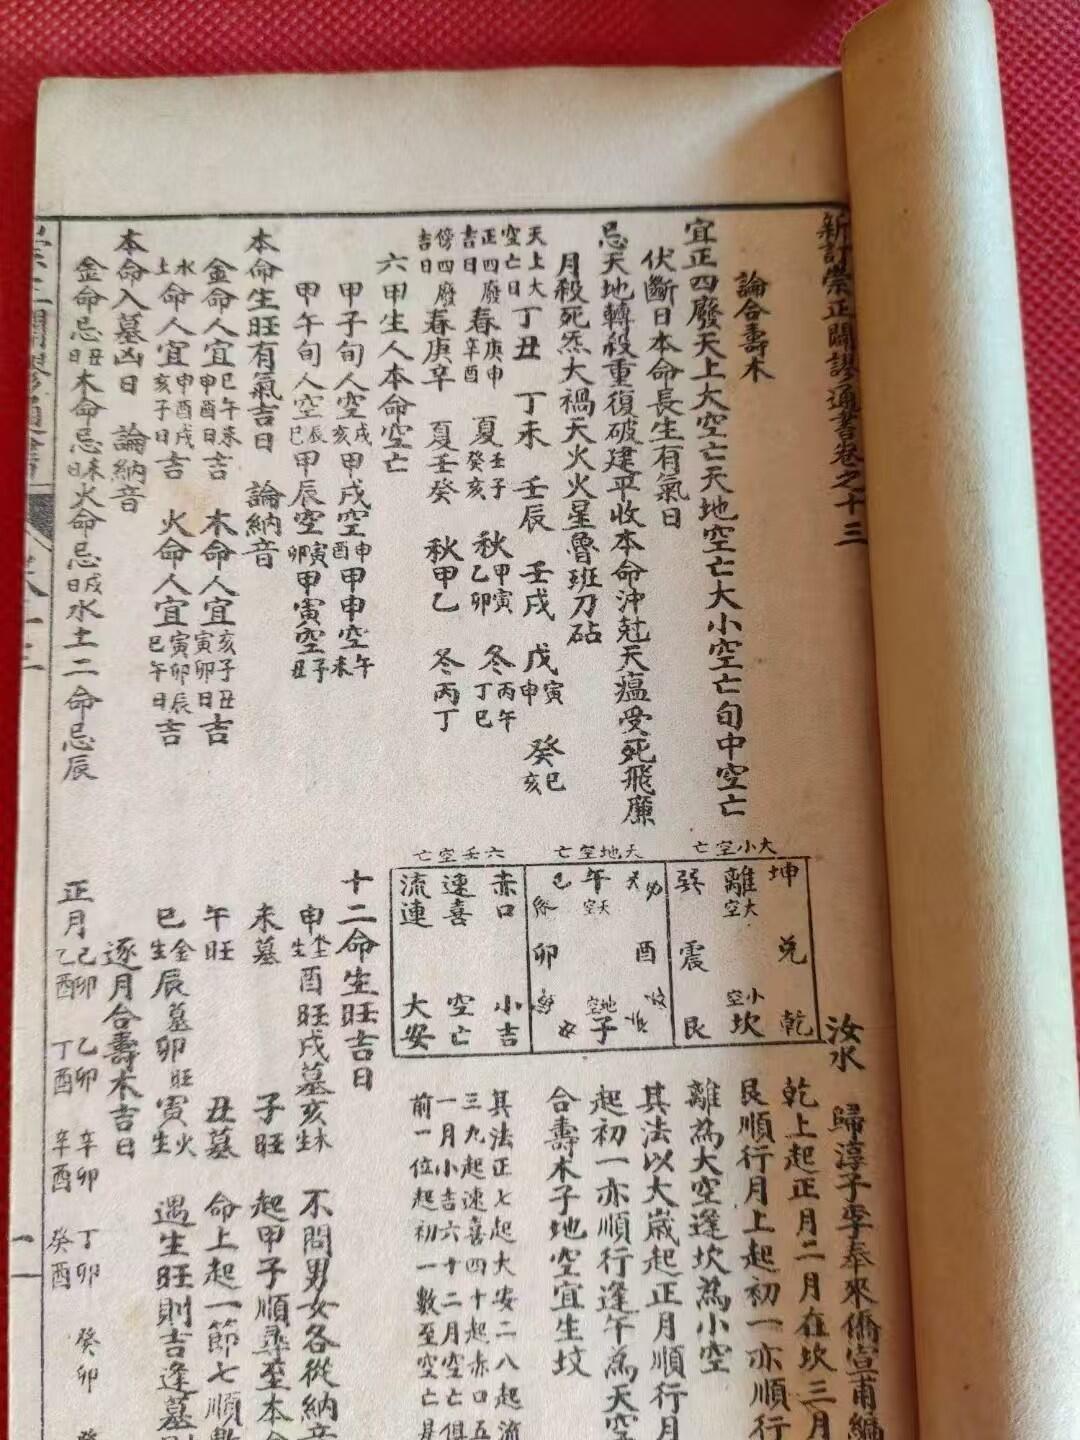 新訂崇正闢謬通書卷之十三
汝水 歸淳子李奉來僑宣甫編
論合壽木
宜正四廢天上大空亡天地空亡大小空亡旬中空亡
伏斷日本命長生有氣日
忌天地轉殺重復破建平收本命沖尅天瘟受死飛廉
月殺死炁大禍天火火星魯班刀砧
天上大空亡日 丁丑 丁未 壬辰 壬戌 戊寅申 癸巳亥
正四廢吉日 春庚申辛酉 夏壬子癸亥 秋甲寅乙卯 冬丙午丁巳
傍四廢吉日 春庚辛 夏壬癸 秋甲乙 冬丙丁
六甲生人本命空亡
甲子旬人空戌亥甲戌空申酉甲申空午未
甲午旬人空辰巳甲辰空寅卯甲寅空子丑
本命生旺有氣吉日 論納音
金命人宜巳午未申酉日吉 木命人宜亥子丑寅卯日吉
水土命人宜申酉戌亥子日吉 火命人宜寅卯辰巳午日吉
本命入墓凶日 論納音
金命忌丑日木命忌未日火命忌戌日水土二命忌辰
大小空亡
坤 離大空 巽
兌 震
乾 坎小空 艮
天地空亡
午天空 巳
酉 卯
子地空
六壬空亡
赤口 速喜 流連
小吉 空亡 大安
乾上起正月二月在坎三月
艮順行月上起初一亦順行
離為大空逢坎為小空
其法以大歲起正月順行月
起初一亦順行逢午為天空
合壽木子地空宜生坟
其法正七起大安二八起流
三九起速喜四十起赤口五
一月小吉六十二月空亡俱
前一位起初一數至空亡是
十二命生旺吉日
申生酉旺戌墓亥生木 不問男女各從納音
未墓 子旺 起甲子順尋至本命
午旺 丑墓 命上起一節七順數
巳生金辰墓卯旺寅生火 遇生旺則吉逢墓
逐月合壽木吉日
正月 己卯 乙卯 辛卯 丁卯 癸卯
乙酉 丁酉 辛酉 癸酉